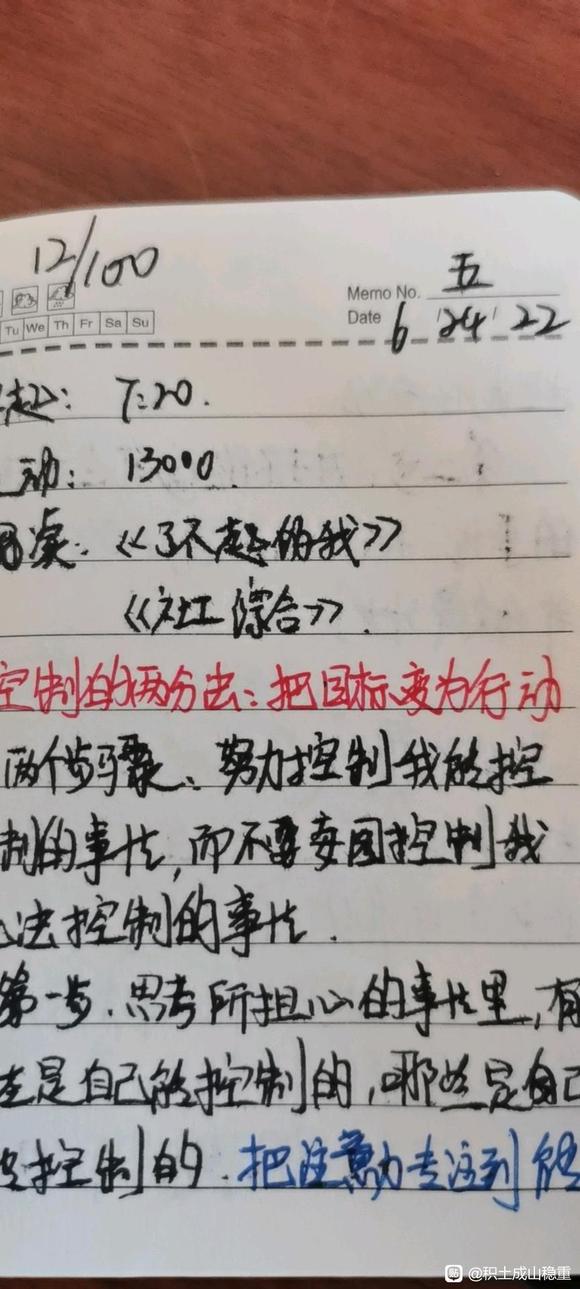 12/100
Memo No. 五
Tu We Th Fr Sa Su
Date 6 24 22
起: 7:20.
动: 13000
阅读: 《了不起的我》
《社工综合》.
控制的两分法: 把目标变为行动
两个步骤、努力控制我能控
制的事情,而不要妄图控制我
法控制的事情.
第一步.思考所担心的事情里,有
是自己能控制的,哪些是自己
控制的.把注意力专注到能
@积土成山稳重